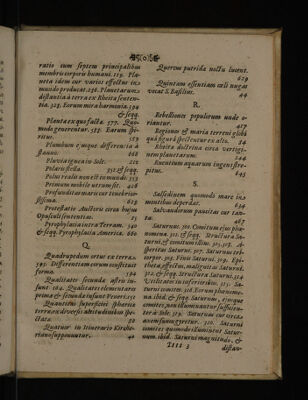 ratio cum septem principalibus
membris corporis humani. 119. Pla-
neta idem cur varios effectus in
mundo producat. 236. Planetarum
distantia à terra ex Rheita senten-
tia. 323. Earum mira harmonia. 394
& seqq.
Planta ex quo facta. 577. Quo-
modo generentur. 577. Earum spe-
ritus. 579
Plumbum ejusque differentia à
stanno. 666
Pluvia ignea in Sole. 212
Polaris stella. 552. & seqq.
Poli reales non est in mundo. 553
Primum mobile utrum sit. 408
Profunditas maris cur tenebrico-
sissima. 603
Protestatio Auctoris circa hujus
Opusculi sententias. 23
Pyrophylacia intra Terram. 340
& seqq. Pyrophylacia America. 660
Q.
Quadrupedum ortus ex terra.
595. Differentiam eorum constituit
forma. 594
Qualitates secunda astris in-
sunt 204. Qualitates elementares
prima & secunda insunt Veneri. 152
Quantitas superficiei sphærica
terræ ex diversis altitudinibus spe-
ctata. 50
Quatuor in itinerario Kirche-
riano supponuntur. 42
Quercus putrida noctu lucent.
629
Quintam essentiam cæli negat
vocat S. Basilius. 44
R.
Rebelliones populorum unde o-
riantur.
Regiones & maria terreni globi
quâ figurâ spectentur ex alto. 54
Rheita doctrina circa vertigi-
nem planetarum. 244
Roncinium aquarum ingens stre-
pitus. 645
S.
Salsedinem quomodo mare in
montibus deperdat. 634
Salvandorum paucitas cur tan-
ta. 467
Saturnus. 310. Comitum ejus phæ-
nomena. 312. & seqq. Structura Sa-
turni, & comitum illius. 315. 317. A-
speritas Saturni. 317. Saturnus tri-
corpor. 313. Finis Saturni. 319. Epi-
theta, effectus, malignitas Saturni.
312. & seqq. Structura Saturni. 324
Utilitates in inferioribus. 325. Sa-
turni comites. 326. Eorum phænome-
na. ibid. & seqq. Saturnus, ejusque
comites, non illuminantur sufficien-
ter à Sole. 329. Saturnus cur circa
axem suum gyretur. 330. Saturni
comites quomodo illuminent Satur-
num. ibid. Saturni magnitudo, &
Llll 3 distan-